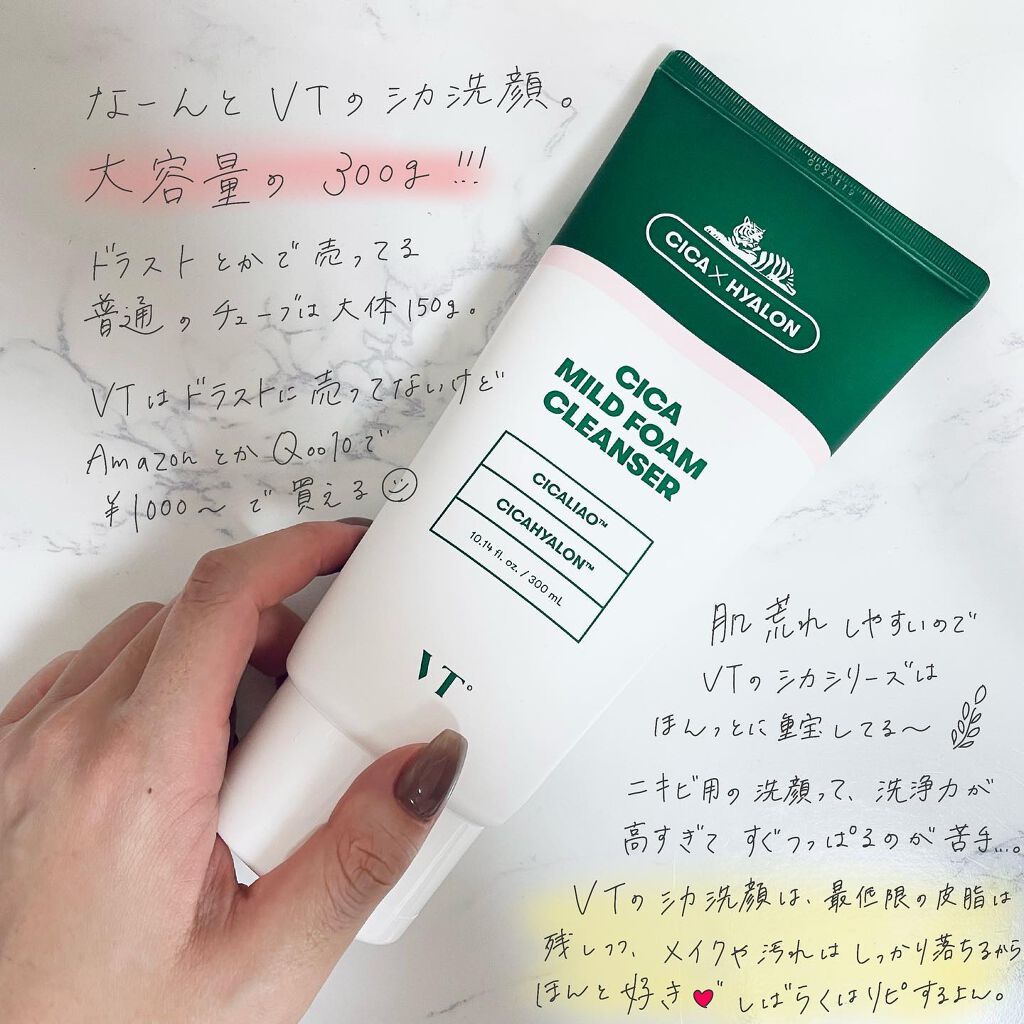 なーんと VTの シカ洗顔。
大容量の 300g !!!
ドラストとかで売ってる
普通の チューブは大体150g。
VTはドラストに売ってないけど
AmazonとかQoo10で
¥1000〜で買える
602A112
CICA×HYALON
CICA
MILD FOAM
CLEANSER
CICALIAO™
CICAHYALON™
10.14 fl. oz. / 300 mL
VT
肌荒れしやすいので
VTのシカシリーズは
ほんっとに重宝してる〜
ニキビ用の洗顔って、洗浄力が
高すぎて すぐつっぱるのが苦手...。
VTのシカ洗顔は、最低限の皮脂は
残しつつ、メイクや汚れはしっかり落ちるから
ほんと好き♥゛しばらくはリピするよん。